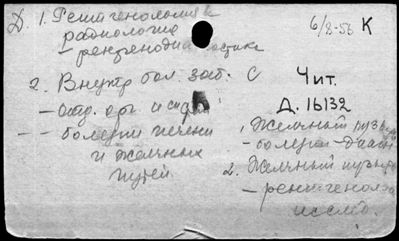 Д. 1. Рентгенология и
радиология
- рентгенодиагностика
6/8-56 К
2. Внутр. бол. заб. С
Чит.
Д. 16132
- отд. орг. и
- - болезни печени
и желчных
путей
1. Желчный пузырь
- болезни - диагн
2. Желчный пузырь
- рентгенол.
исслед.